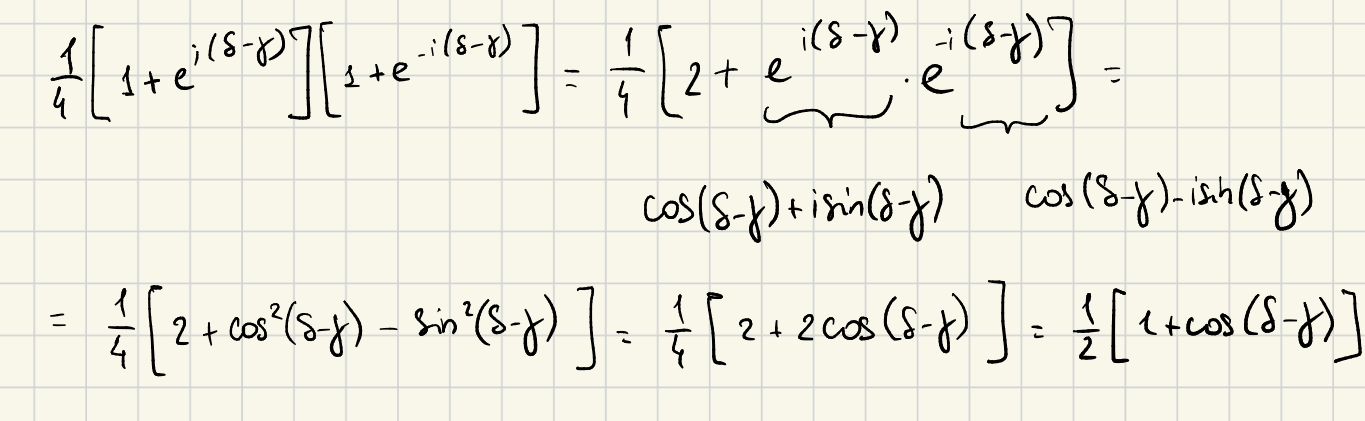 1/4 [1 + e^{i(δ-γ)}][1 + e^{-i(δ-γ)}] = 1/4 [2 + e^{i(δ-γ)} · e^{-i(δ-γ)}] =
cos(δ-γ) + i sin(δ-γ) cos(δ-γ) - i sin(δ-γ)
= 1/4 [2 + cos²(δ-γ) - sin²(δ-γ)] = 1/4 [2 + 2cos(δ-γ)] = 1/2 [1 + cos(δ-γ)]